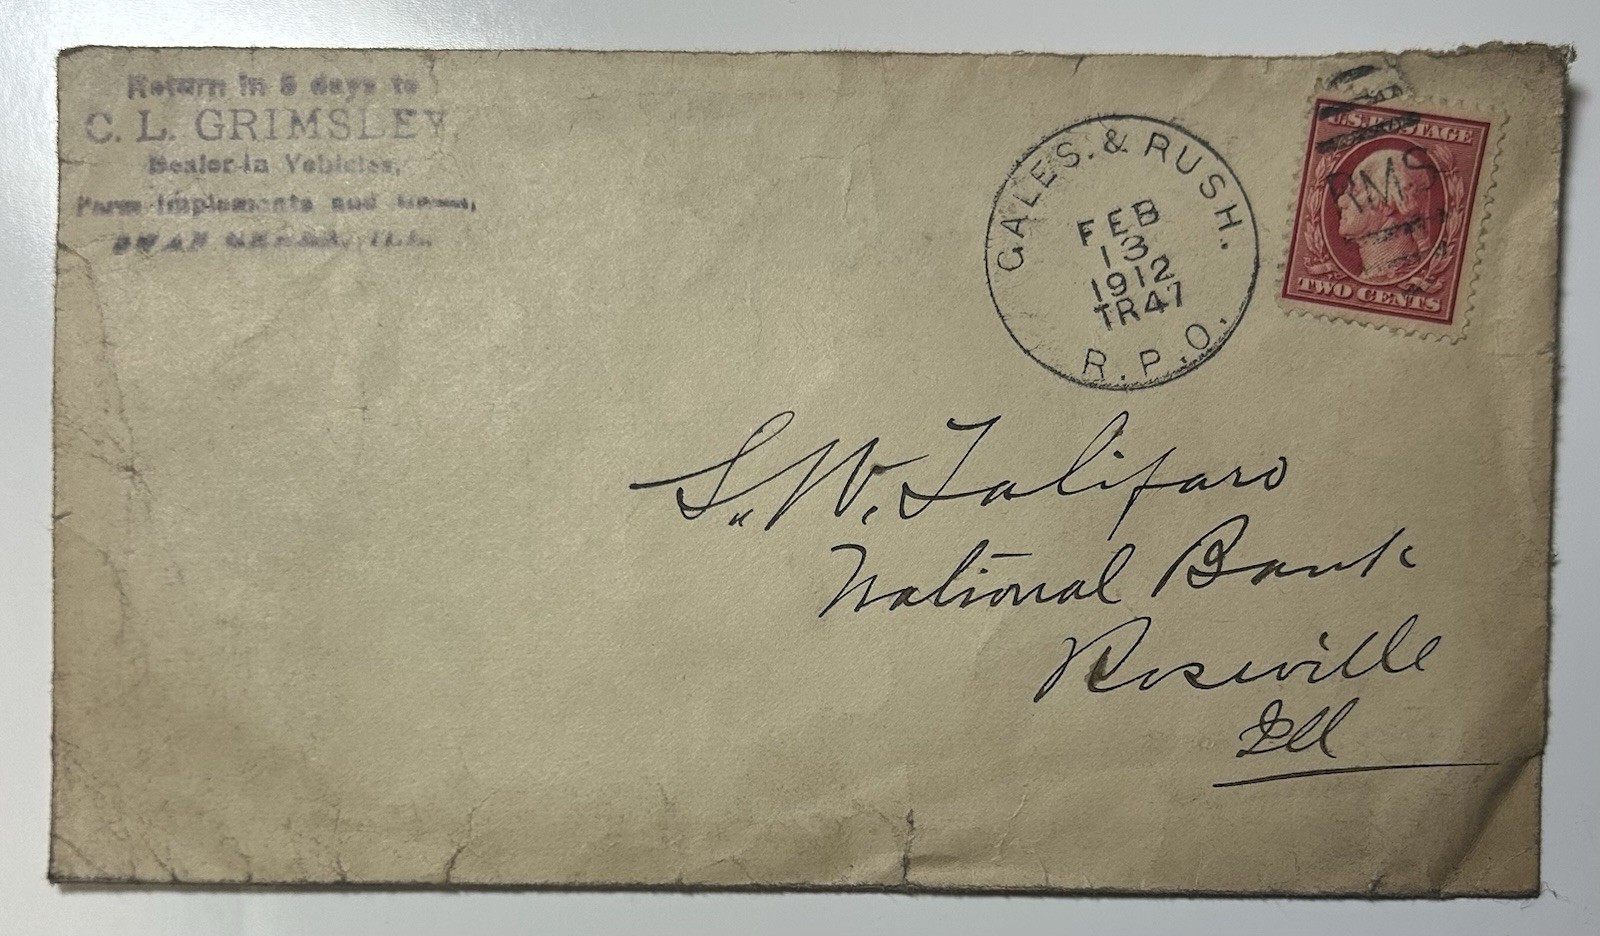 Return in 5 days to
C. L. GRIMSLEY,
Dealer in Vehicles,
Farm Implements and
SWAN CREEK, ILL.
GALES. & RUSH.
FEB
13
1912
TR47
R.P.O.
U.S. POSTAGE
RMS
TWO CENTS
S. W. Talifaro
National Bank
Roseville
Ill